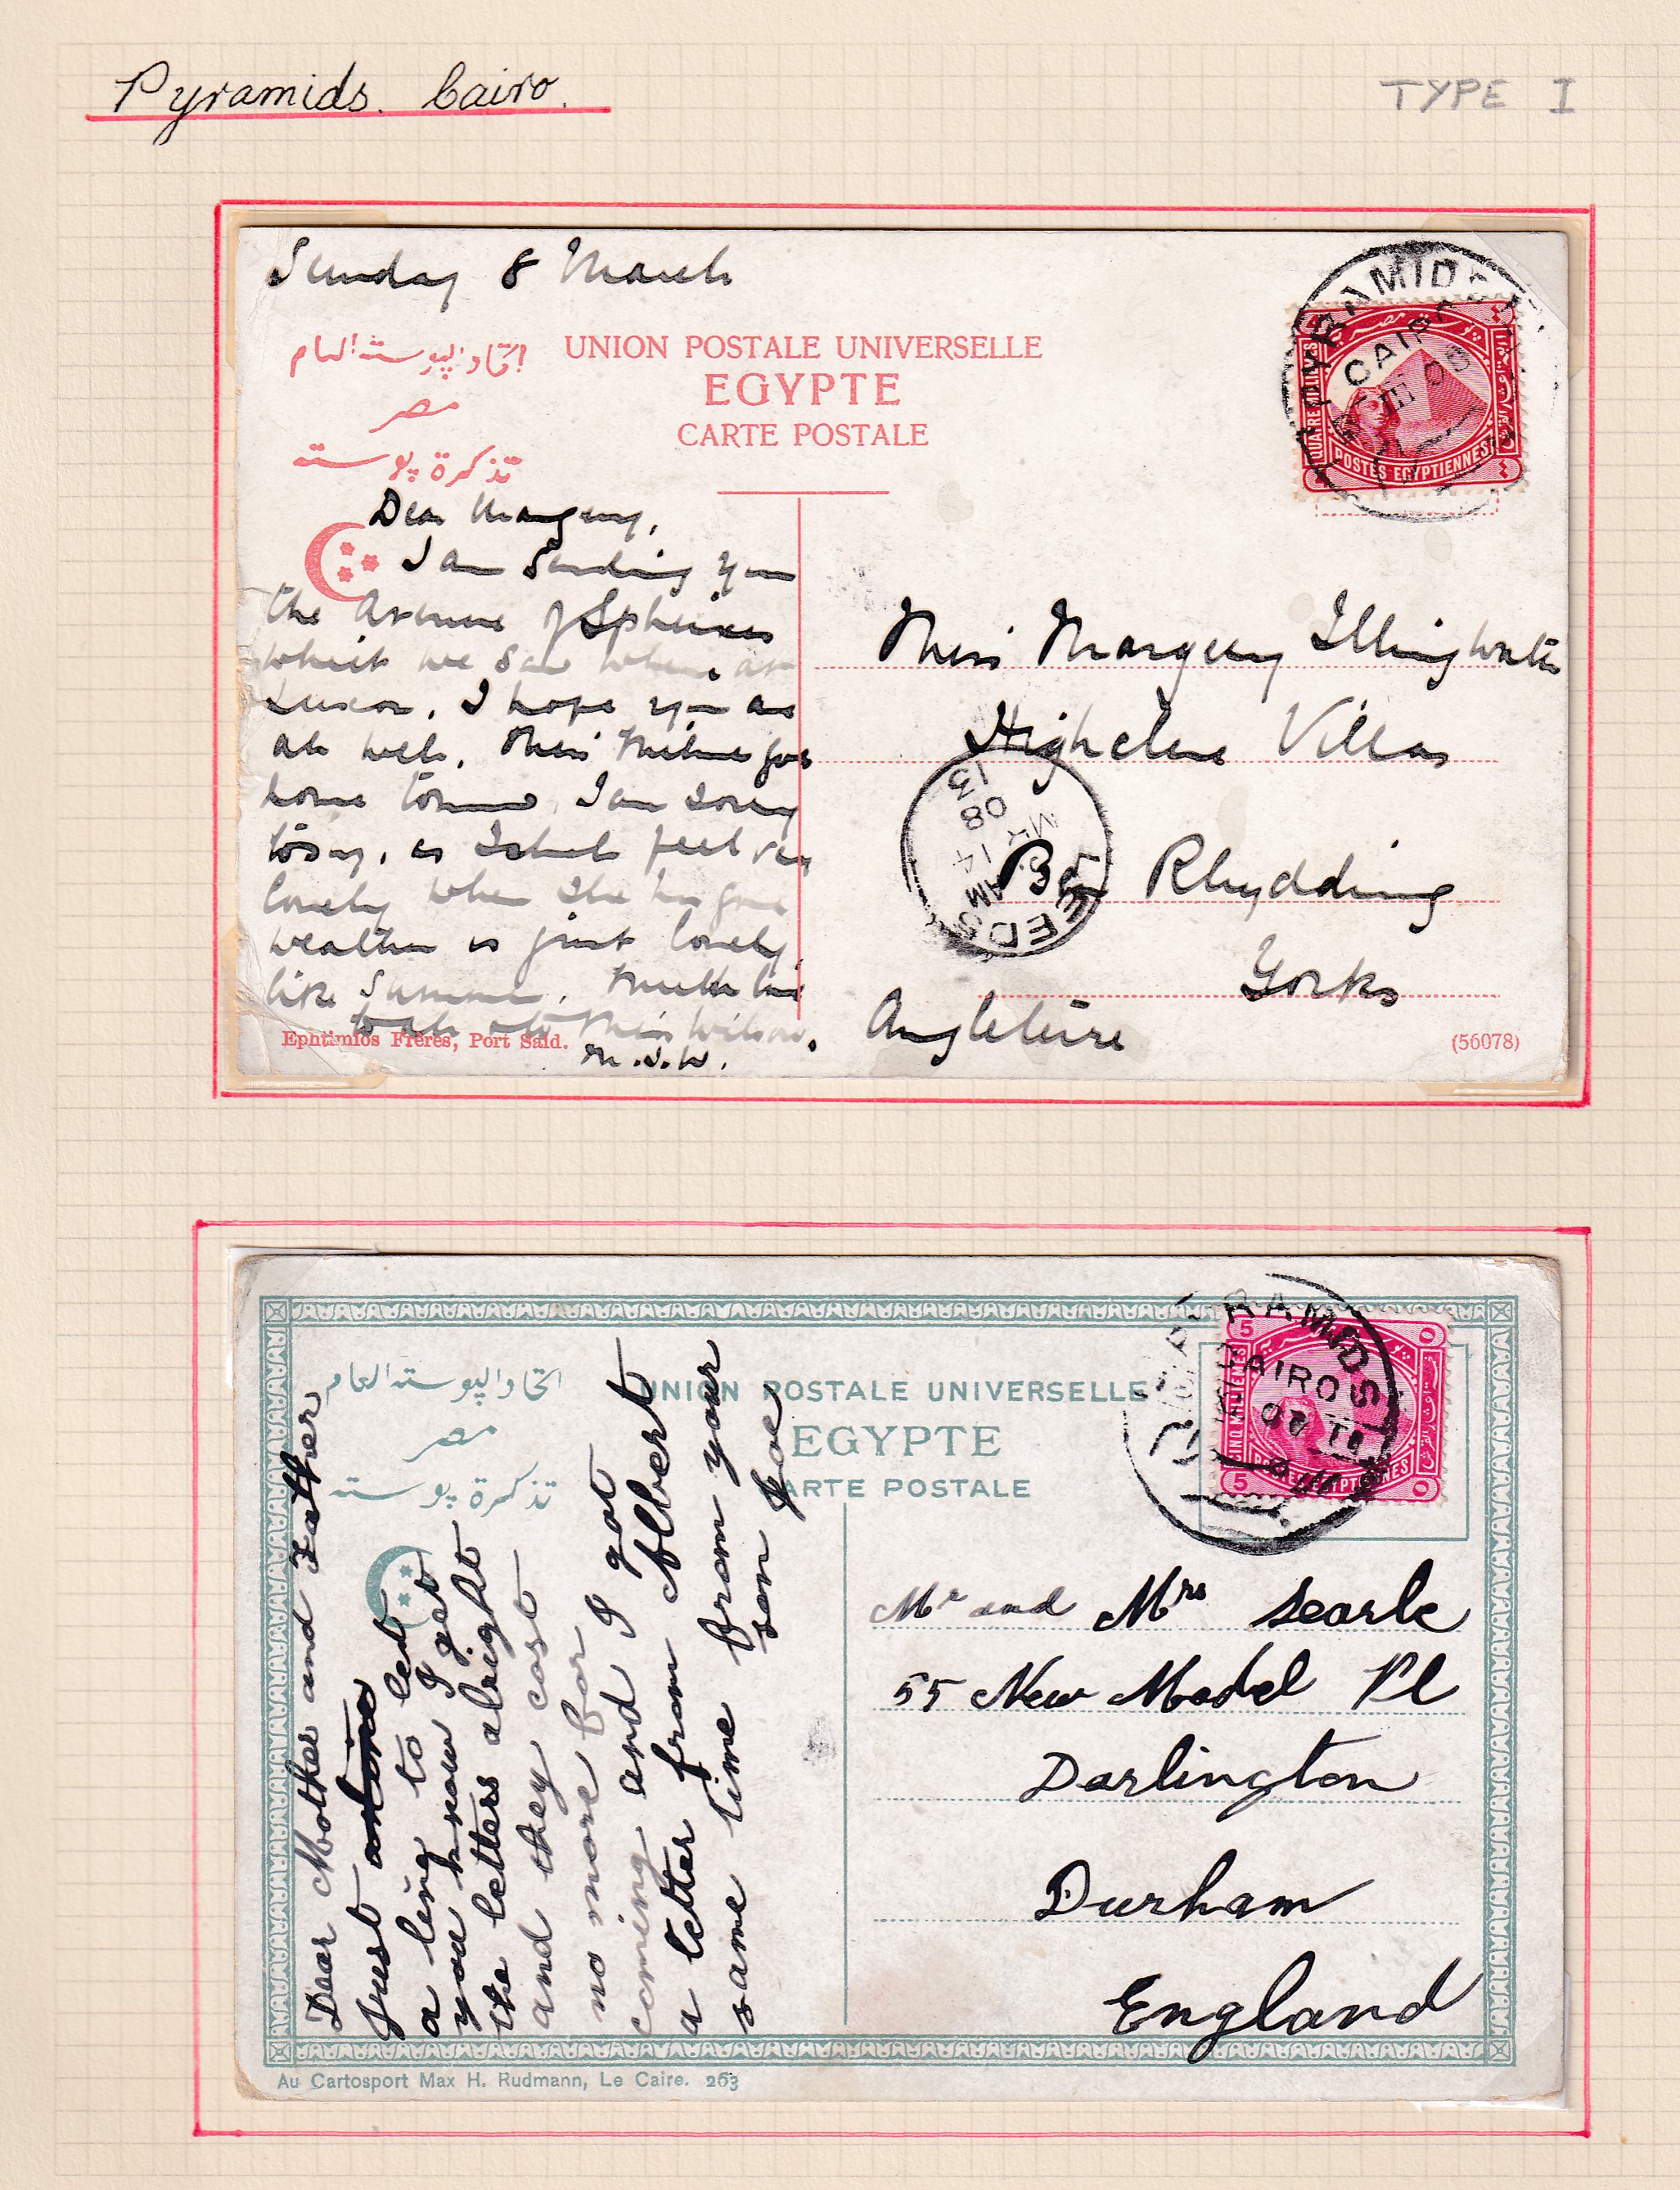 Pyramids. Cairo.
TYPE I
Sunday 8 March
اتحاد البوسته العام
مصر
تذكرة بوسته
UNION POSTALE UNIVERSELLE
EGYPTE
CARTE POSTALE
PYRAMIDS
CAIRO
III 08
POSTES EGYPTIENNES
Dear Margery,
I am sending you
the Avenue of Sphinxes
which we saw when at
Luxor. I hope you are
all well. Miss Milne goes
home tomorrow I am sorry
to say, as I shall feel very
lonely when she has gone
weather is just lovely
like Summer. Much love
to all Miss Wilson.
M.J.W.
Ephtimios Frères, Port Saïd.
Miss Margery Illingworth
Highclere Villas
Ben Rhydding
Yorks
Angleterre
(56078)
LEEDS
AM
MY 14
08
13
اتحاد البوسته العام
مصر
تذكرة بوسته
UNION POSTALE UNIVERSELLE
EGYPTE
CARTE POSTALE
RAMIDS
AIRO
5
CINQ MILLIEMES
5
Dear Mother and Father
Just a line to let
you know I get
the letters alright
and they cost
no more for
coming and I got
a letter from Albert
same time from your
son Joe
Mr and Mrs Searle
55 New Model Pl
Darlington
Durham
England
Au Cartosport Max H. Rudmann, Le Caire. 263